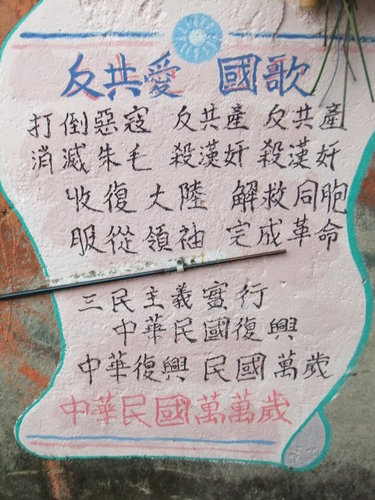 反共愛 國歌
打倒惡寇 反共產 反共產
消滅朱毛 殺漢奸 殺漢奸
收復大陸 解救同胞
服從領袖 完成革命
三民主義實行
中華民國復興
中華復興 民國萬歲
中華民國萬萬歲